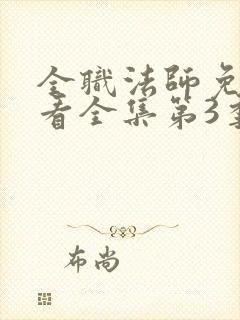 全職法師免
看全集第3季
布尚